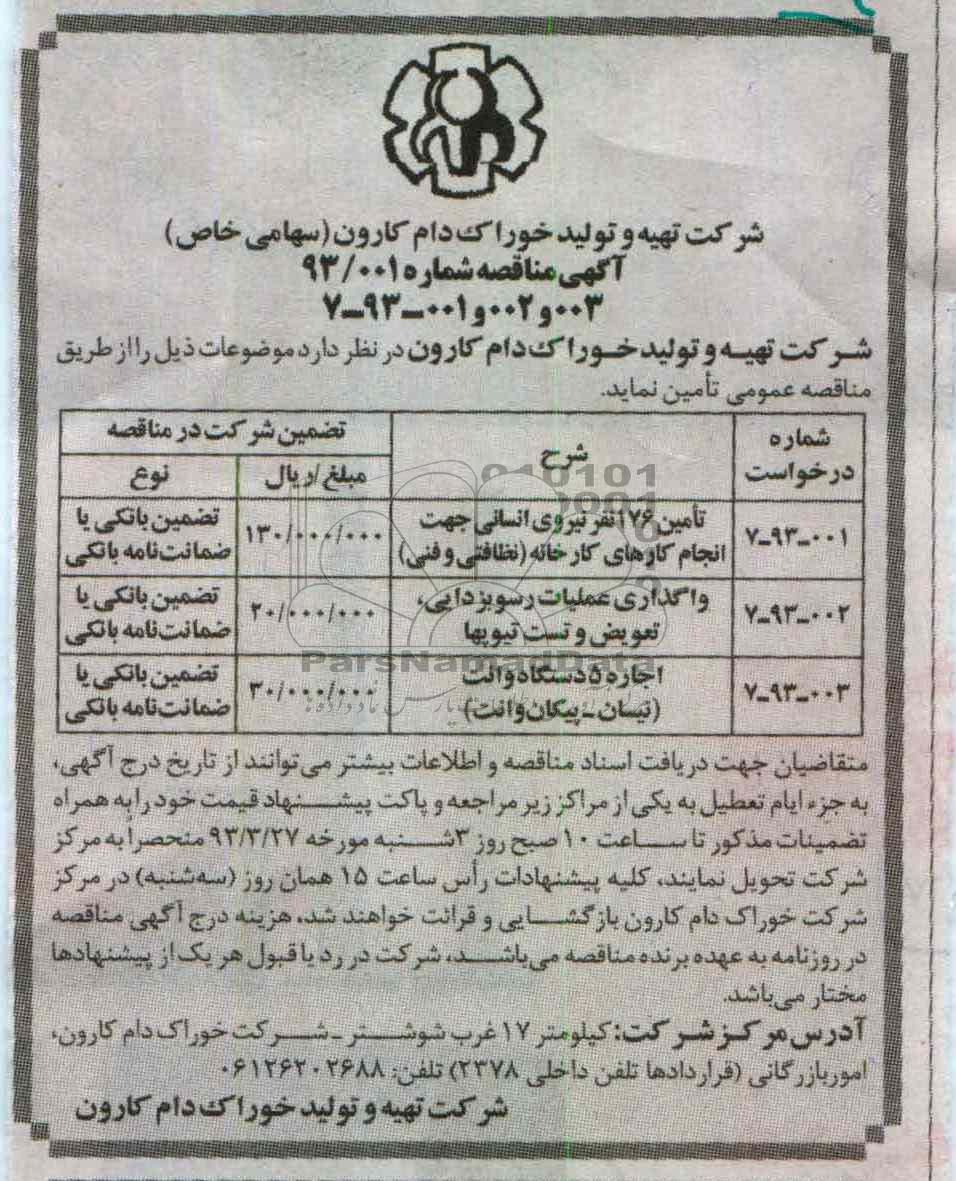 شرکت تهیه و تولید خوراک دام کارون (سهامی خاص)
آگهی مناقصه شماره ۹۳/۰۰۱
۷-۹۳-۰۰۱ و ۰۰۲ و ۰۰۳
شرکت تهیه و تولید خوراک دام کارون در نظر دارد موضوعات ذیل را از طریق
مناقصه عمومی تأمین نماید.
شماره درخواست
شرح
تضمین شرکت در مناقصه
مبلغ/ریال
نوع
۷-۹۳-۰۰۱
تأمین ۱۷۶ نفر نیروی انسانی جهت
انجام کارهای کارخانه (نظافتی و فنی)
۱۳۰/۰۰۰/۰۰۰
تضمین بانکی یا
ضمانت‌نامه بانکی
۷-۹۳-۰۰۲
واگذاری عملیات رسوبزدایی،
تعویض و تست تیوپها
۲۰/۰۰۰/۰۰۰
تضمین بانکی یا
ضمانت‌نامه بانکی
۷-۹۳-۰۰۳
اجاره ۵ دستگاه وانت
(نیسان - پیکان وانت)
۳۰/۰۰۰/۰۰۰
تضمین بانکی یا
ضمانت‌نامه بانکی
ParsNamadData
متقاضیان جهت دریافت اسناد مناقصه و اطلاعات بیشتر می‌توانند از تاریخ درج آگهی،
به جزء ایام تعطیل به یکی از مراکز زیر مراجعه و پاکت پیشنهاد قیمت خود را به همراه
تضمینات مذکور تا ساعت ۱۰ صبح روز ۳شنبه مورخه ۹۳/۳/۲۷ منحصراً به مرکز
شرکت تحویل نمایند، کلیه پیشنهادات رأس ساعت ۱۵ همان روز (سه‌شنبه) در مرکز
شرکت خوراک دام کارون بازگشایی و قرائت خواهند شد، هزینه درج آگهی مناقصه
در روزنامه به عهده برنده مناقصه می‌باشد، شرکت در رد یا قبول هر یک از پیشنهادها
مختار می‌باشد.
آدرس مرکز شرکت: کیلومتر ۱۷ غرب شوشتر - شرکت خوراک دام کارون،
امور بازرگانی (قراردادها تلفن داخلی ۲۳۷۸) تلفن: ۰۶۱۲۶۲۰۲۶۸۸
شرکت تهیه و تولید خوراک دام کارون